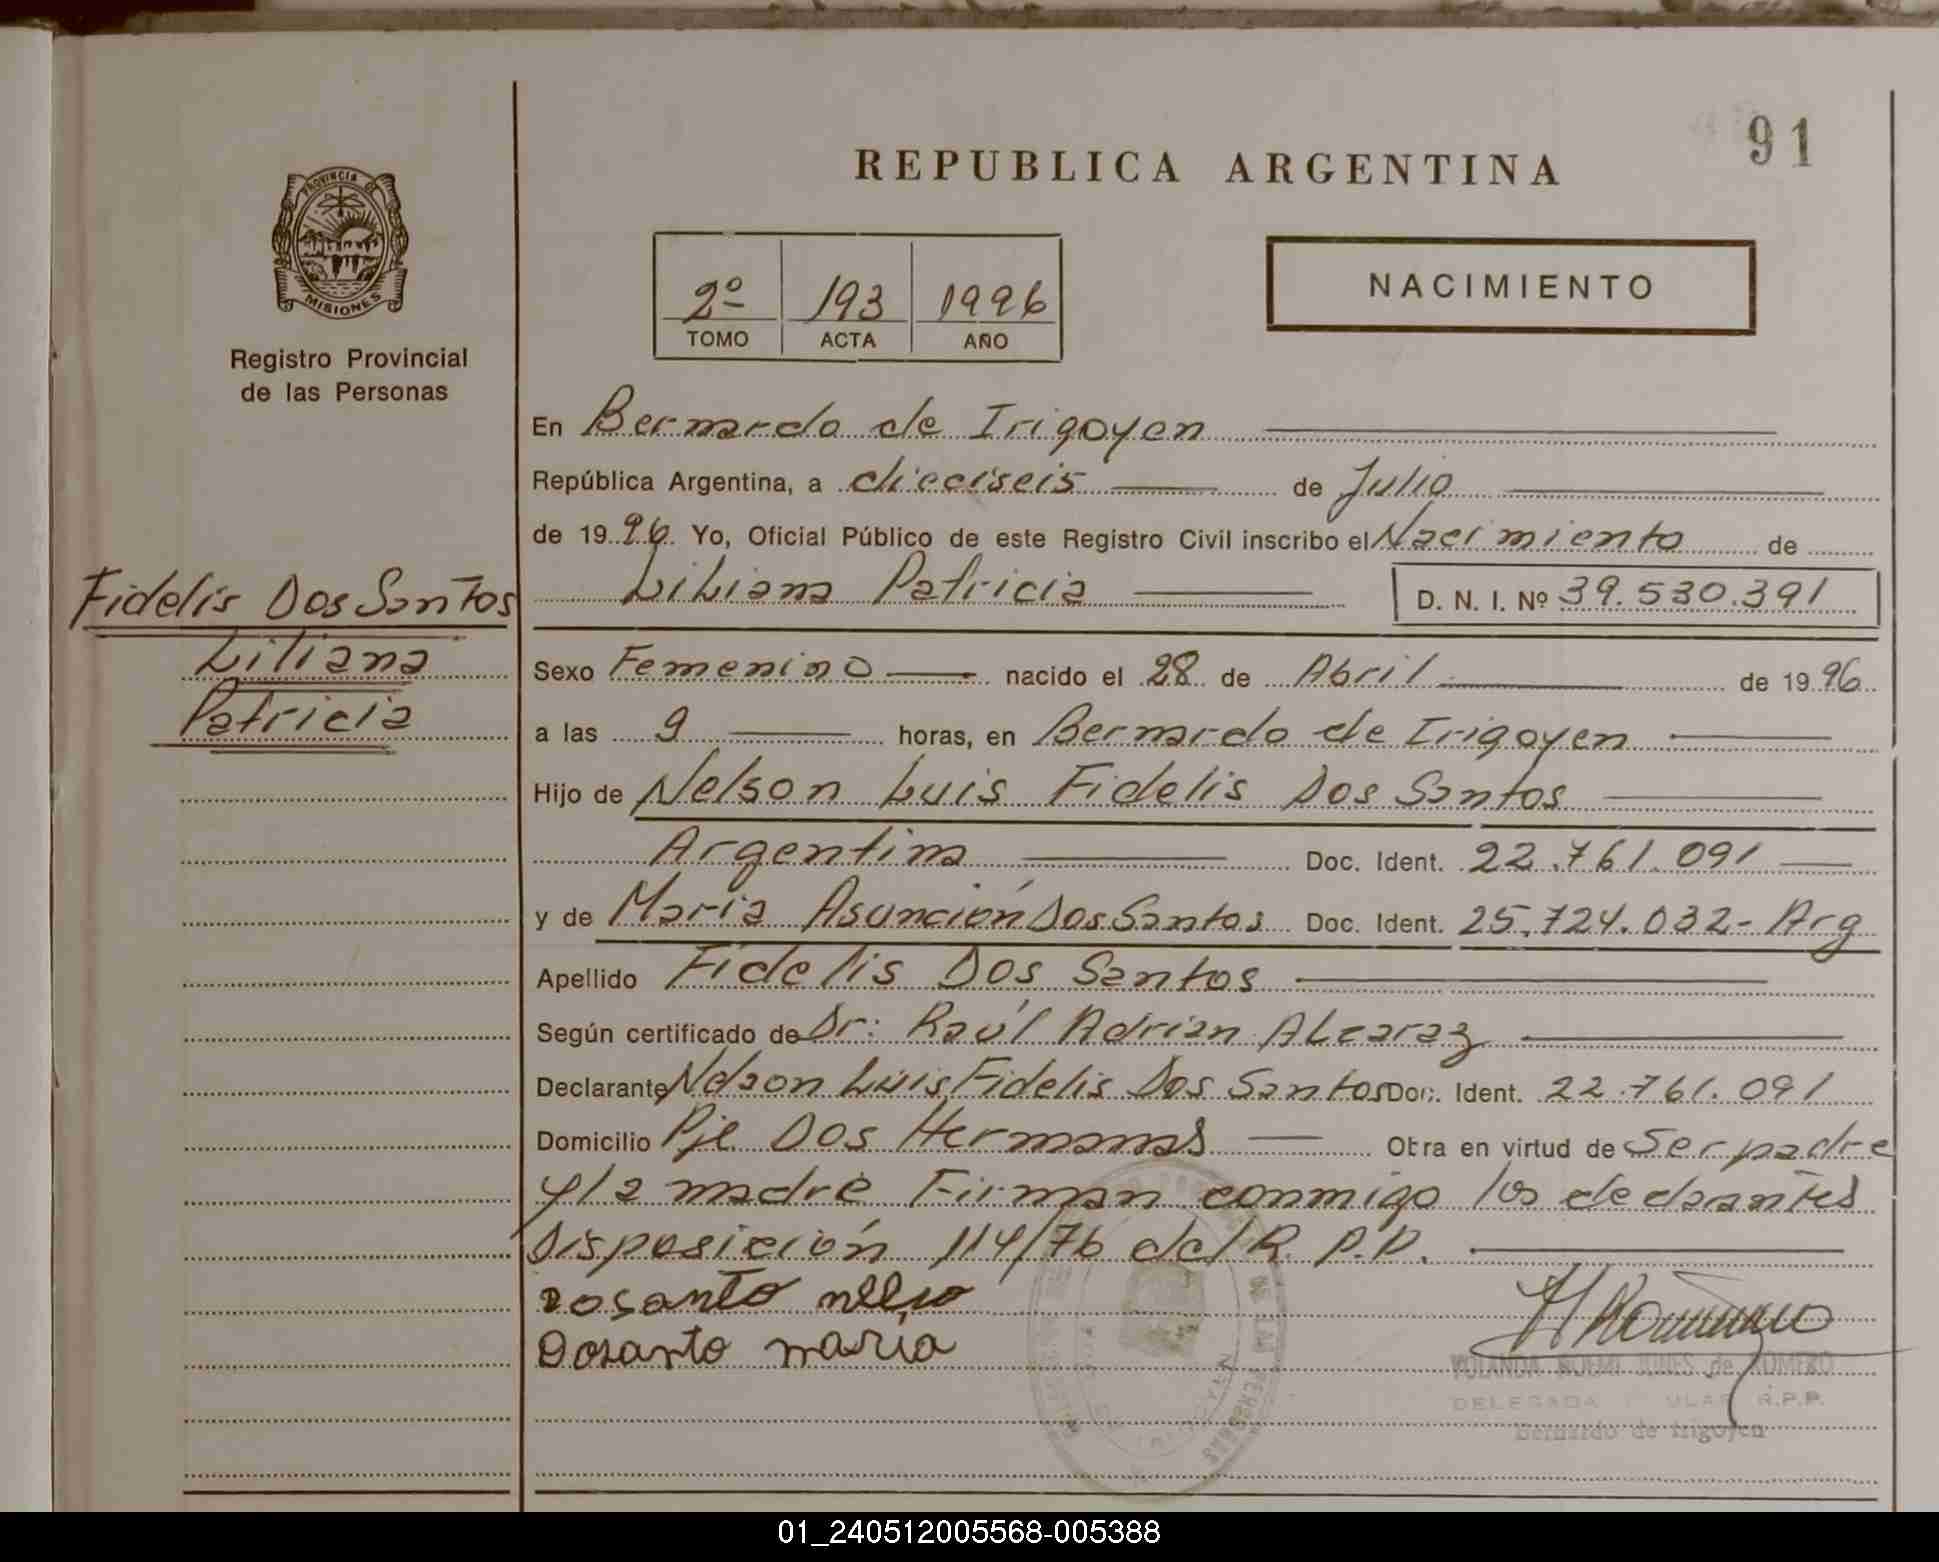 91
REPUBLICA ARGENTINA
PROVINCIA DE
MISIONES
Registro Provincial
de las Personas
2º 193 1996
TOMO ACTA AÑO
NACIMIENTO
En Bernardo de Irigoyen
República Argentina, a dieciseis de Julio
de 1996. Yo, Oficial Público de este Registro Civil inscribo el Nacimiento de
Liliana Patricia D. N. I. Nº 39.530.391
Fidelis Dos Santos
Liliana
Patricia
Sexo Femenino nacido el 28 de Abril de 1996
a las 9 horas, en Bernardo de Irigoyen
Hijo de Nelson Luis Fidelis Dos Santos
Argentina Doc. Ident. 22.761.091
y de Maria Asunción Dos Santos Doc. Ident. 25.724.032- Arg
Apellido Fidelis Dos Santos
Según certificado de Dr: Raúl Adrian Alcaraz
Declarante Nelson Luis Fidelis Dos Santos Doc. Ident. 22.761.091
Domicilio Pje Dos Hermanas Obra en virtud de Ser padre
y la madre Firman conmigo los declarantes
Disposición 114/76 del R. P.P.
Dosanto maria
YOLANDA NOEMI de ROMERO
DELEGADA R.P.P.
Bernardo de Irigoyen
01_240512005568-005388